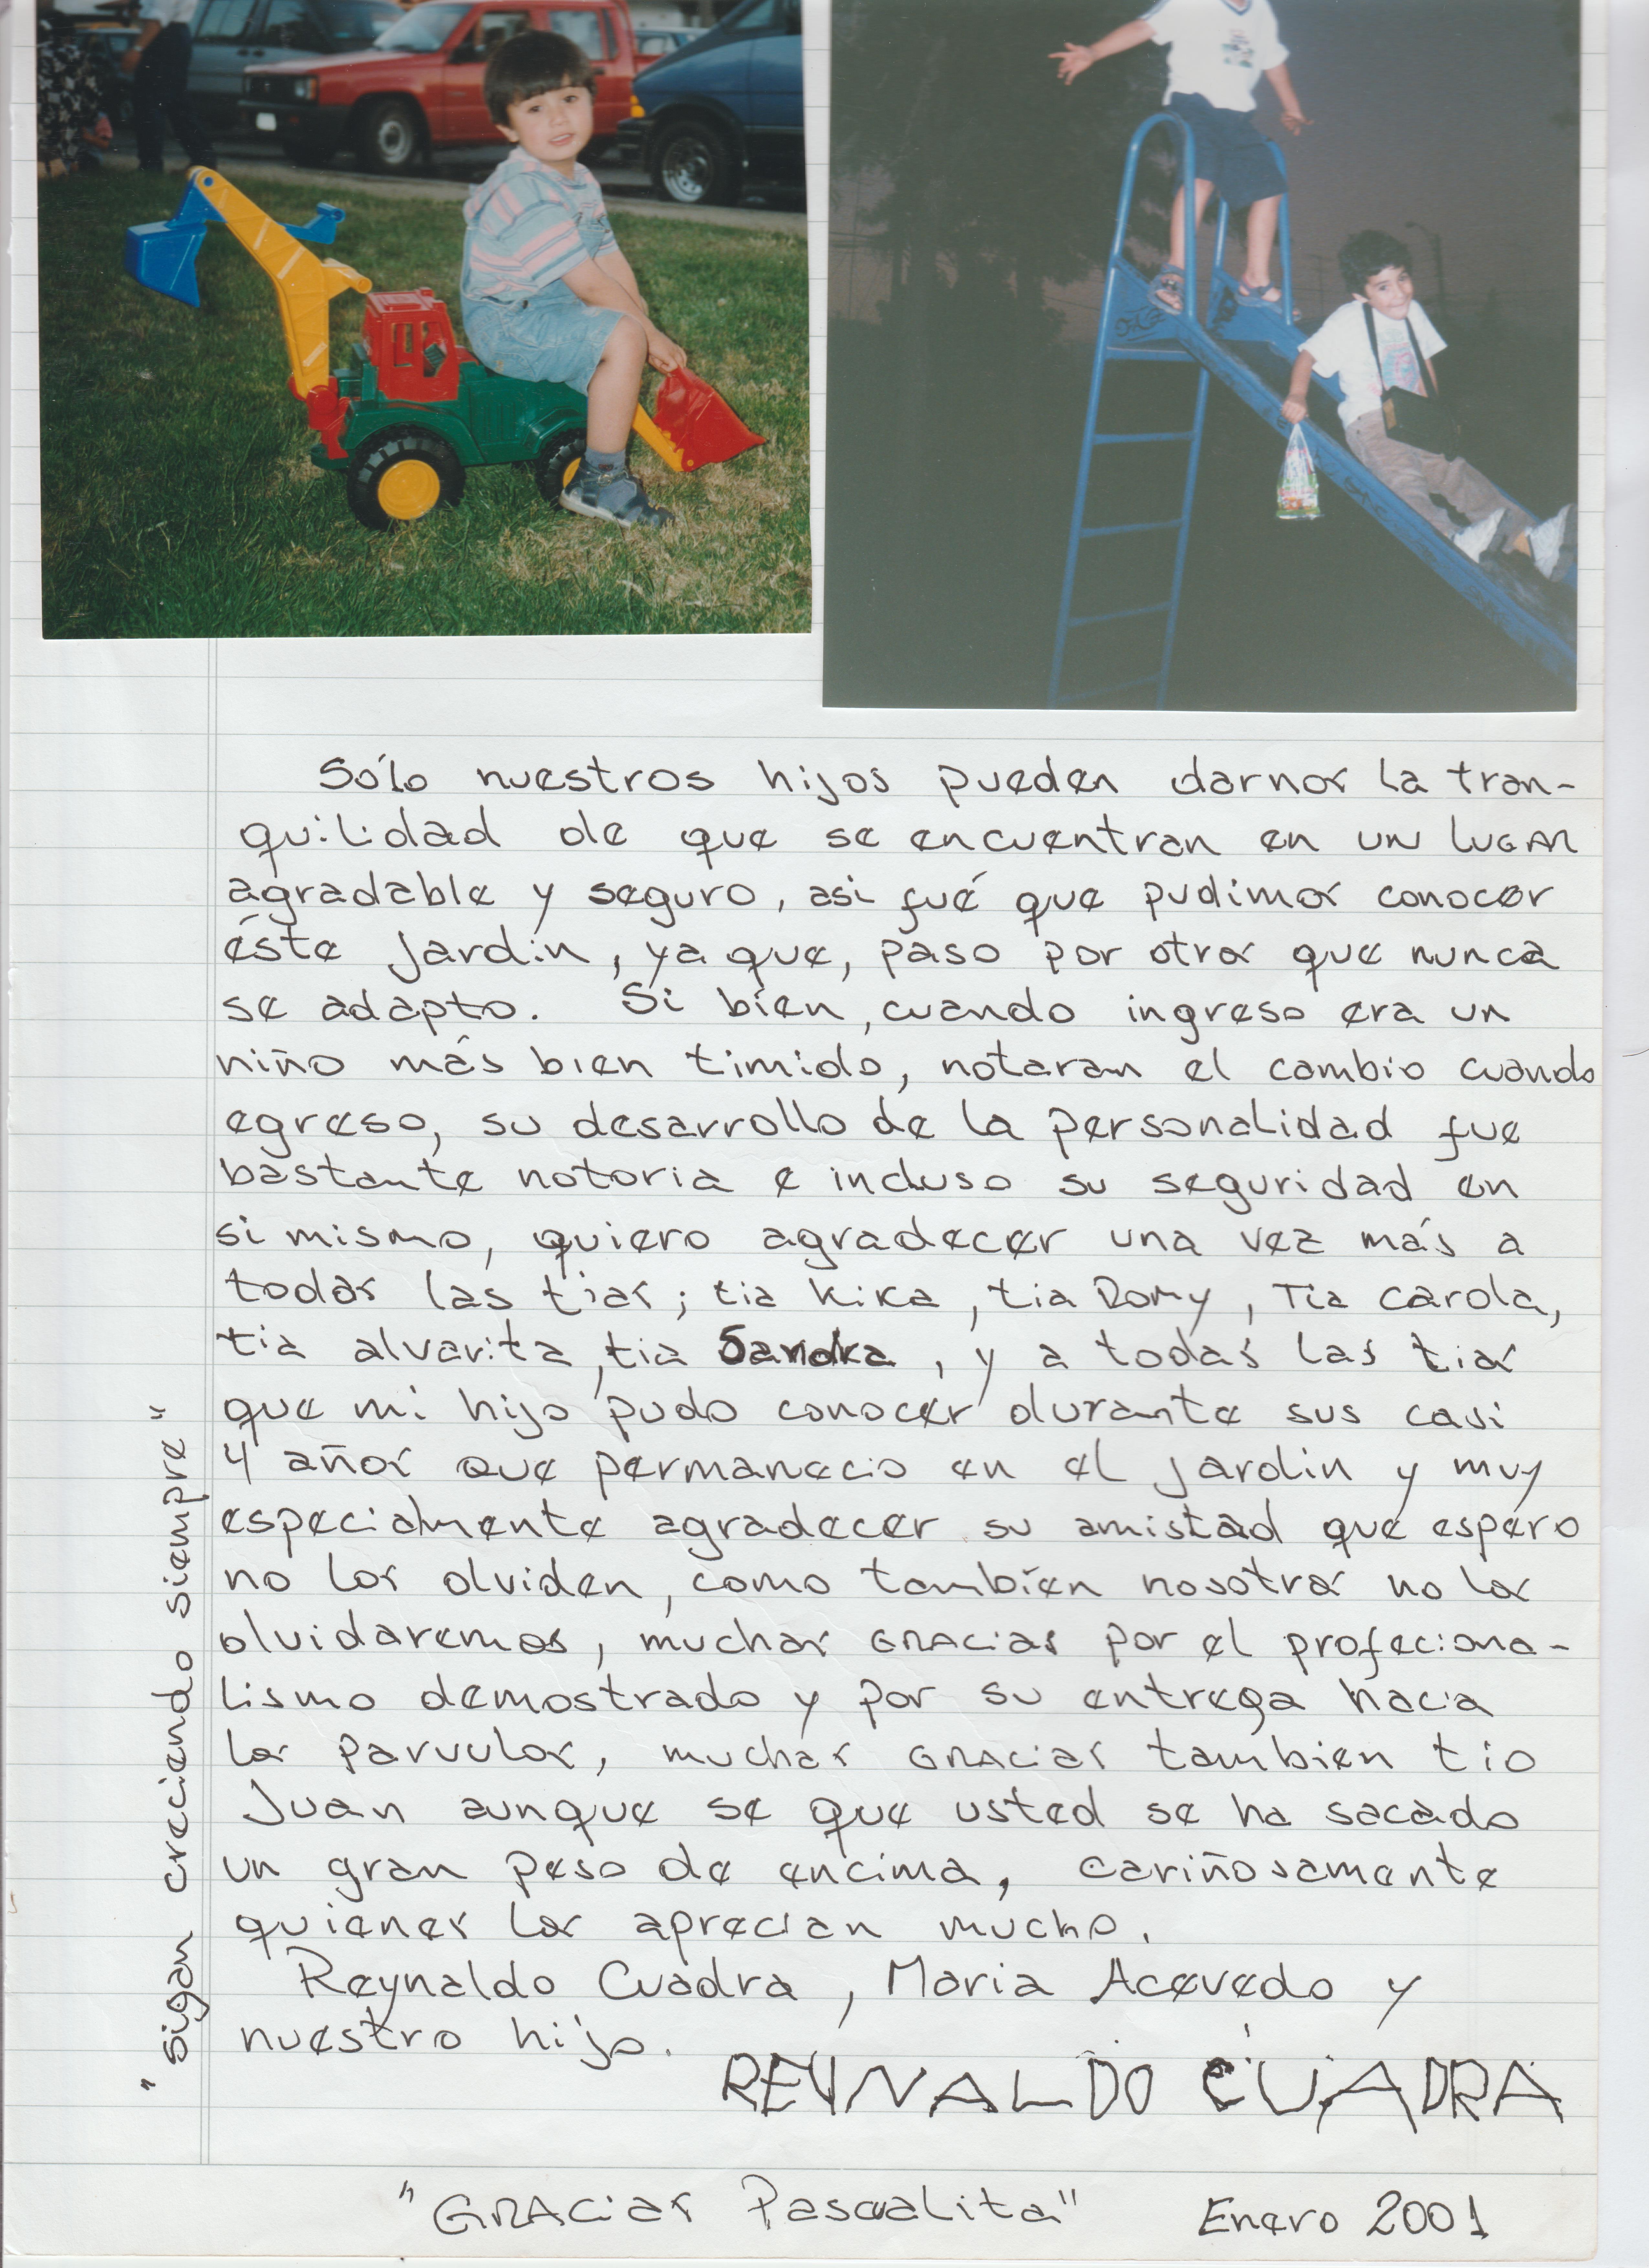 Sólo nuestros hijos pueden darnos la tran-
quilidad de que se encuentran en un lugar
agradable y seguro, asi fué que pudimos conocer
éste jardín, ya que, paso por otros que nunca
se adapto. Si bien, cuando ingreso era un
niño más bien timido, notaran el cambio cuando
egreso, su desarrollo de la personalidad fue
bastante notoria e incluso su seguridad en
si mismo, quiero agradecer una vez más a
todas las tias; tia Kika, tia Romy, Tia Carola,
tia alvarita, tia Sandra, y a todas las tias
que mi hijo pudo conocer durante sus casi
4 años que permanecio en el jardin y muy
especialmente agradecer su amistad que espero
no los olviden, como tambien nosotros no los
olvidaremos, muchas GRACias por el profeciona-
lismo demostrado y por su entrega hacia
los parvulos, muchas GRACias tambien tio
Juan aunque se que usted se ha sacado
un gran peso de encima, cariñosamente
quienes los aprecian mucho.
Reynaldo Cuadra, Maria Acevedo y
nuestro hijo.
REYNALDO CUADRA
"GRACias Pascualita" Enero 2001
"sigan creciendo siempre"